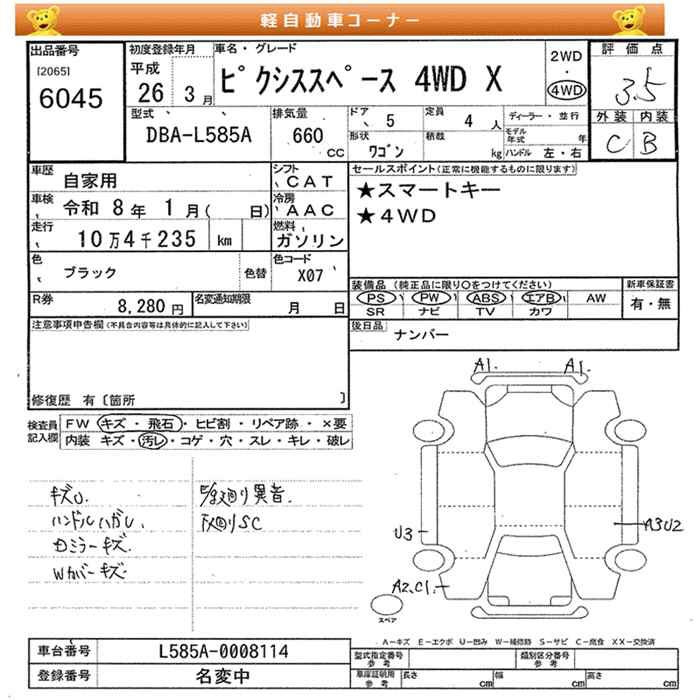 軽自動車コーナー
出品番号
[2065]
6045
初度登録年月
平成
26 3月
車名・グレード
ピクシススペース 4WD X
2WD
・
4WD
評価点
3.5
外装 内装
C B
型式
DBA-L585A
排気量
660
CC
ドア
5
定員
4 人
形状
ワゴン
積載
kg
ディーラー・並行
モデル年式 年
ハンドル 左・右
車歴
自家用
シフト
CAT
車検
令和 8年 1月( 日)
冷房
AAC
走行
10万4千235 km
燃料
ガソリン
色
ブラック
色替
色コード
X07
R券
8,280円
名変通知期限
月 日
セールスポイント(正常に機能するものに限ります)
★スマートキー
★4WD
装備品 (純正品に限り○をつけてください)
PS PW ABS エアB AW
SR ナビ TV カワ
新車保証書
有・無
後日品
ナンバー
注意事項申告欄(不具合内容等は具体的に記入して下さい)
修復歴 有〔箇所 〕
検査員
記入欄
FW キズ・飛石・ヒビ割・リペア跡・×要
内装 キズ・汚レ・コゲ・穴・スレ・キレ・破レ
キズU.
ハンドルハガレ.
ミラーキズ
Wカバーキズ
異音.
下廻りSC
A1. A1.
U3
A3U2
A2.C1.
スペア
A-キズ E-エクボ U-凹み W-補修跡 S-サビ C-腐食 XX-交換済
車台番号
L585A-0008114
登録番号
名変中
型式指定番号
参考
類別区分番号
参考
車庫証明用
参考
長さ cm
幅 cm
高さ cm